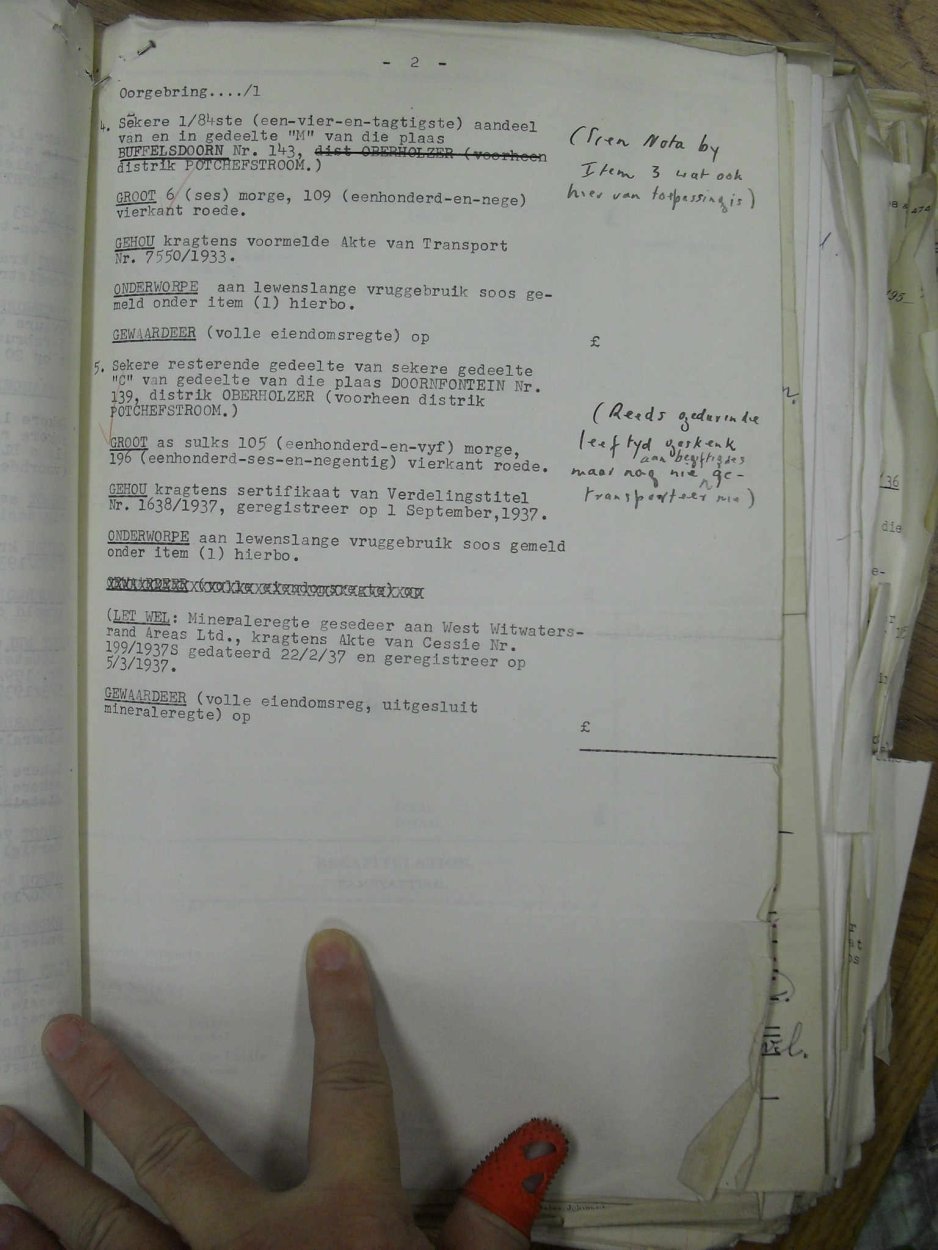 - 2 -
Oorgebring..../1
4. Sekere 1/84ste (een-vier-en-tagtigste) aandeel
van en in gedeelte "M" van die plaas
BUFFELSDOORN Nr. 143, dist OBERHOLZER (voorheen
distrik POTCHEFSTROOM.)
(Sien Nota by
Item 3 wat ook
hier van toepassing is)
GROOT 6 (ses) morge, 109 (eenhonderd-en-nege)
vierkant roede.
GEHOU kragtens voormelde Akte van Transport
Nr. 7550/1933.
ONDERWORPE aan lewenslange vruggebruik soos ge-
meld onder item (1) hierbo.
GEWAARDEER (volle eiendomsregte) op £
5. Sekere resterende gedeelte van sekere gedeelte
"C" van gedeelte van die plaas DOORNFONTEIN Nr.
139, distrik OBERHOLZER (voorheen distrik
POTCHEFSTROOM.)
(Reeds gedurende
leeftyd geskenk
aan begiftigdes
maar nog nie ge-
transporteer nie)
GROOT as sulks 105 (eenhonderd-en-vyf) morge,
196 (eenhonderd-ses-en-negentig) vierkant roede.
GEHOU kragtens sertifikaat van Verdelingstitel
Nr. 1638/1937, geregistreer op 1 September,1937.
ONDERWORPE aan lewenslange vruggebruik soos gemeld
onder item (1) hierbo.
GEWAARDEER (volle eiendomsregte) op
(LET WEL: Mineraleregte gesedeer aan West Witwaters-
rand Areas Ltd., kragtens Akte van Cessie Nr.
199/1937S gedateerd 22/2/37 en geregistreer op
5/3/1937.
GEWAARDEER (volle eiendomsreg, uitgesluit
mineraleregte) op
£